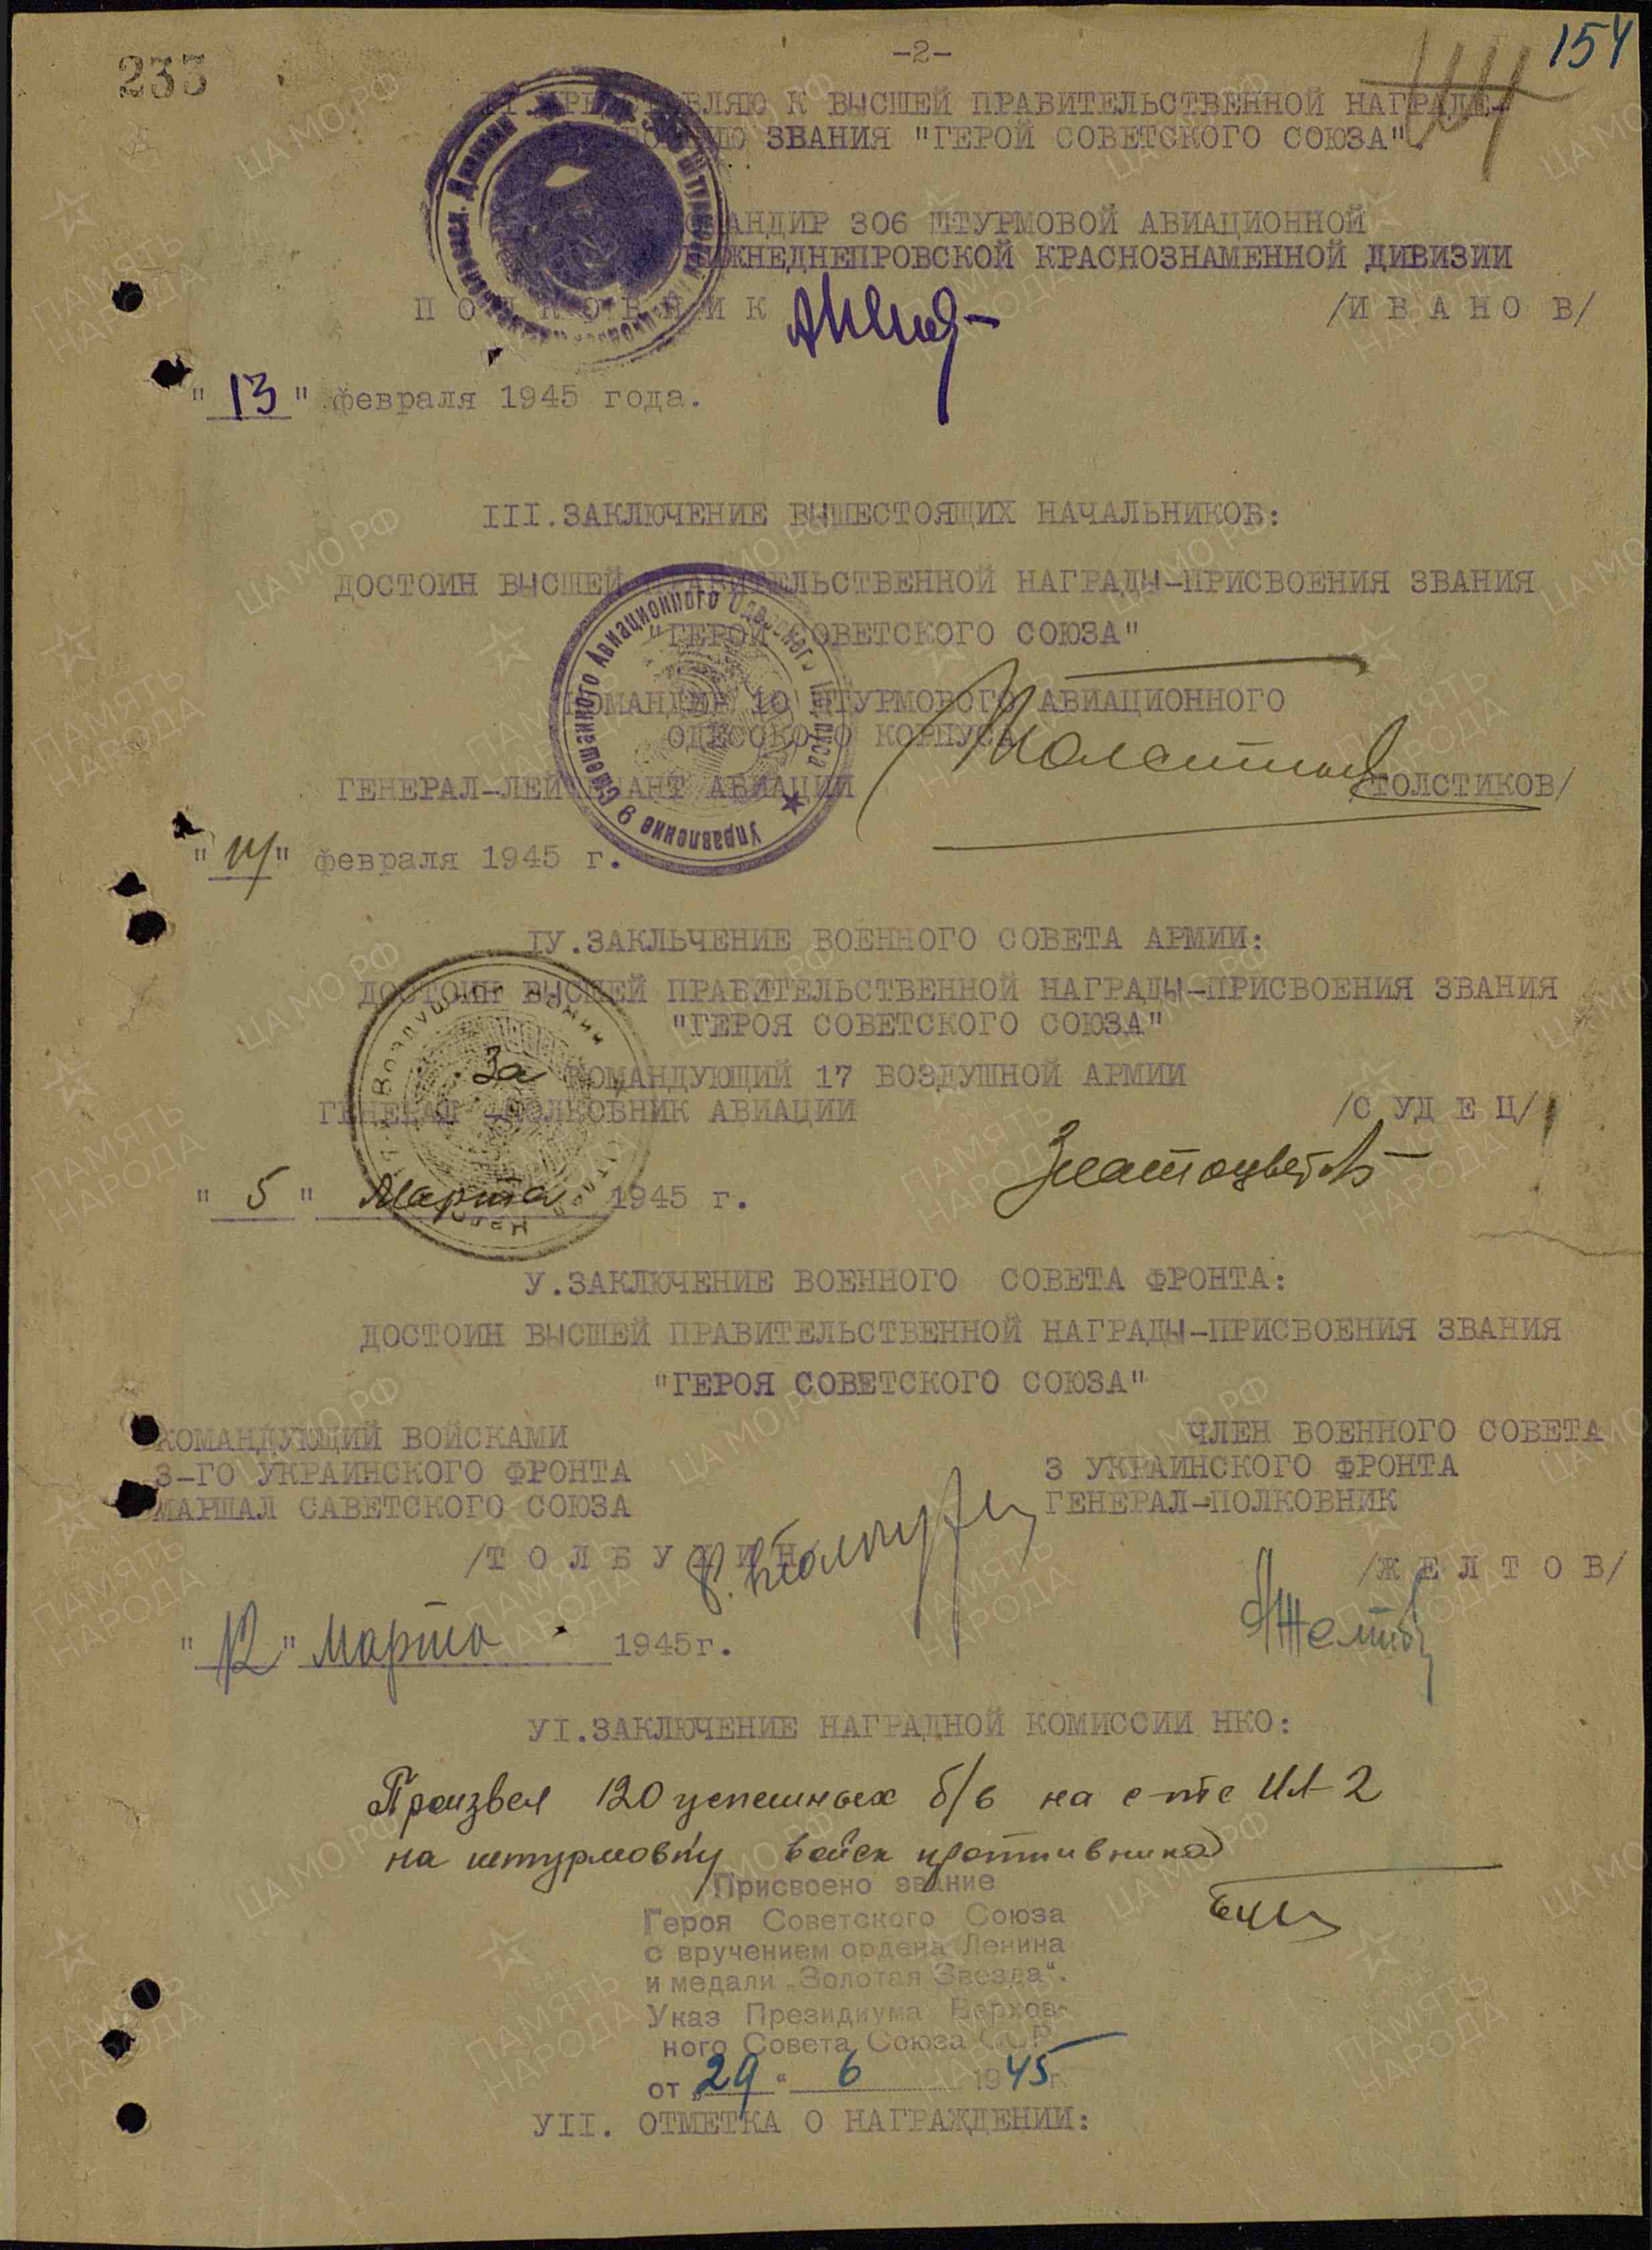 233
-2-
154
К ВЫСШЕЙ ПРАВИТЕЛЬСТВЕННОЙ НАГРАДЕ-
ЗВАНИЯ "ГЕРОЙ СОВЕТСКОГО СОЮЗА".
306 ШТУРМОВОЙ АВИАЦИОННОЙ
КРАСНОЗНАМЕННОЙ ДИВИЗИИ
П О Л К О В Н И К /И В А Н О В/
"13" февраля 1945 года.
III.ЗАКЛЮЧЕНИЕ ВЫШЕСТОЯЩИХ НАЧАЛЬНИКОВ:
ДОСТОИН ВЫСШЕЙ ПРАВИТЕЛЬСТВЕННОЙ НАГРАДЫ-ПРИСВОЕНИЯ ЗВАНИЯ
"ГЕРОЙ СОВЕТСКОГО СОЮЗА"
Управление 9 Смешанного Авиационного Одесского Корпуса
КОМАНДИР 10 ШТУРМОВОГО АВИАЦИОННОГО
ОДЕССКОГО КОРПУСА
ГЕНЕРАЛ-ЛЕЙТЕНАНТ АВИАЦИИ /ТОЛСТИКОВ/
"14" февраля 1945 г.
IУ.ЗАКЛЬЧЕНИЕ ВОЕННОГО СОВЕТА АРМИИ:
ДОСТОИН ВЫСШЕЙ ПРАВИТЕЛЬСТВЕННОЙ НАГРАДЫ-ПРИСВОЕНИЯ ЗВАНИЯ
"ГЕРОЯ СОВЕТСКОГО СОЮЗА"
За КОМАНДУЮЩИЙ 17 ВОЗДУШНОЙ АРМИИ
ГЕНЕРАЛ -ПОЛКОВНИК АВИАЦИИ /С УД Е Ц/
Златоцветов
"5" Марта 1945 г.
У.ЗАКЛЮЧЕНИЕ ВОЕННОГО СОВЕТА ФРОНТА:
ДОСТОИН ВЫСШЕЙ ПРАВИТЕЛЬСТВЕННОЙ НАГРАДЫ-ПРИСВОЕНИЯ ЗВАНИЯ
"ГЕРОЯ СОВЕТСКОГО СОЮЗА"
КОМАНДУЮЩИЙ ВОЙСКАМИ ЧЛЕН ВОЕННОГО СОВЕТА
3-ГО УКРАИНСКОГО ФРОНТА 3 УКРАИНСКОГО ФРОНТА
МАРШАЛ САВЕТСКОГО СОЮЗА ГЕНЕРАЛ-ПОЛКОВНИК
/Т О Л Б У Х И Н /Ж Е Л Т О В/
"12" Марта 1945г.
УI.ЗАКЛЮЧЕНИЕ НАГРАДНОЙ КОМИССИИ НКО:
Произвел 120 успешных б/в на с-те ИЛ-2
на штурмовку войск противника
Присвоено звание
Героя Советского Союза
с вручением ордена Ленина
и медали „Золотая Звезда".
Указ Президиума Верхов-
ного Совета Союза ССР
от „29" 6 1945г.
УII. ОТМЕТКА О НАГРАЖДЕНИИ: